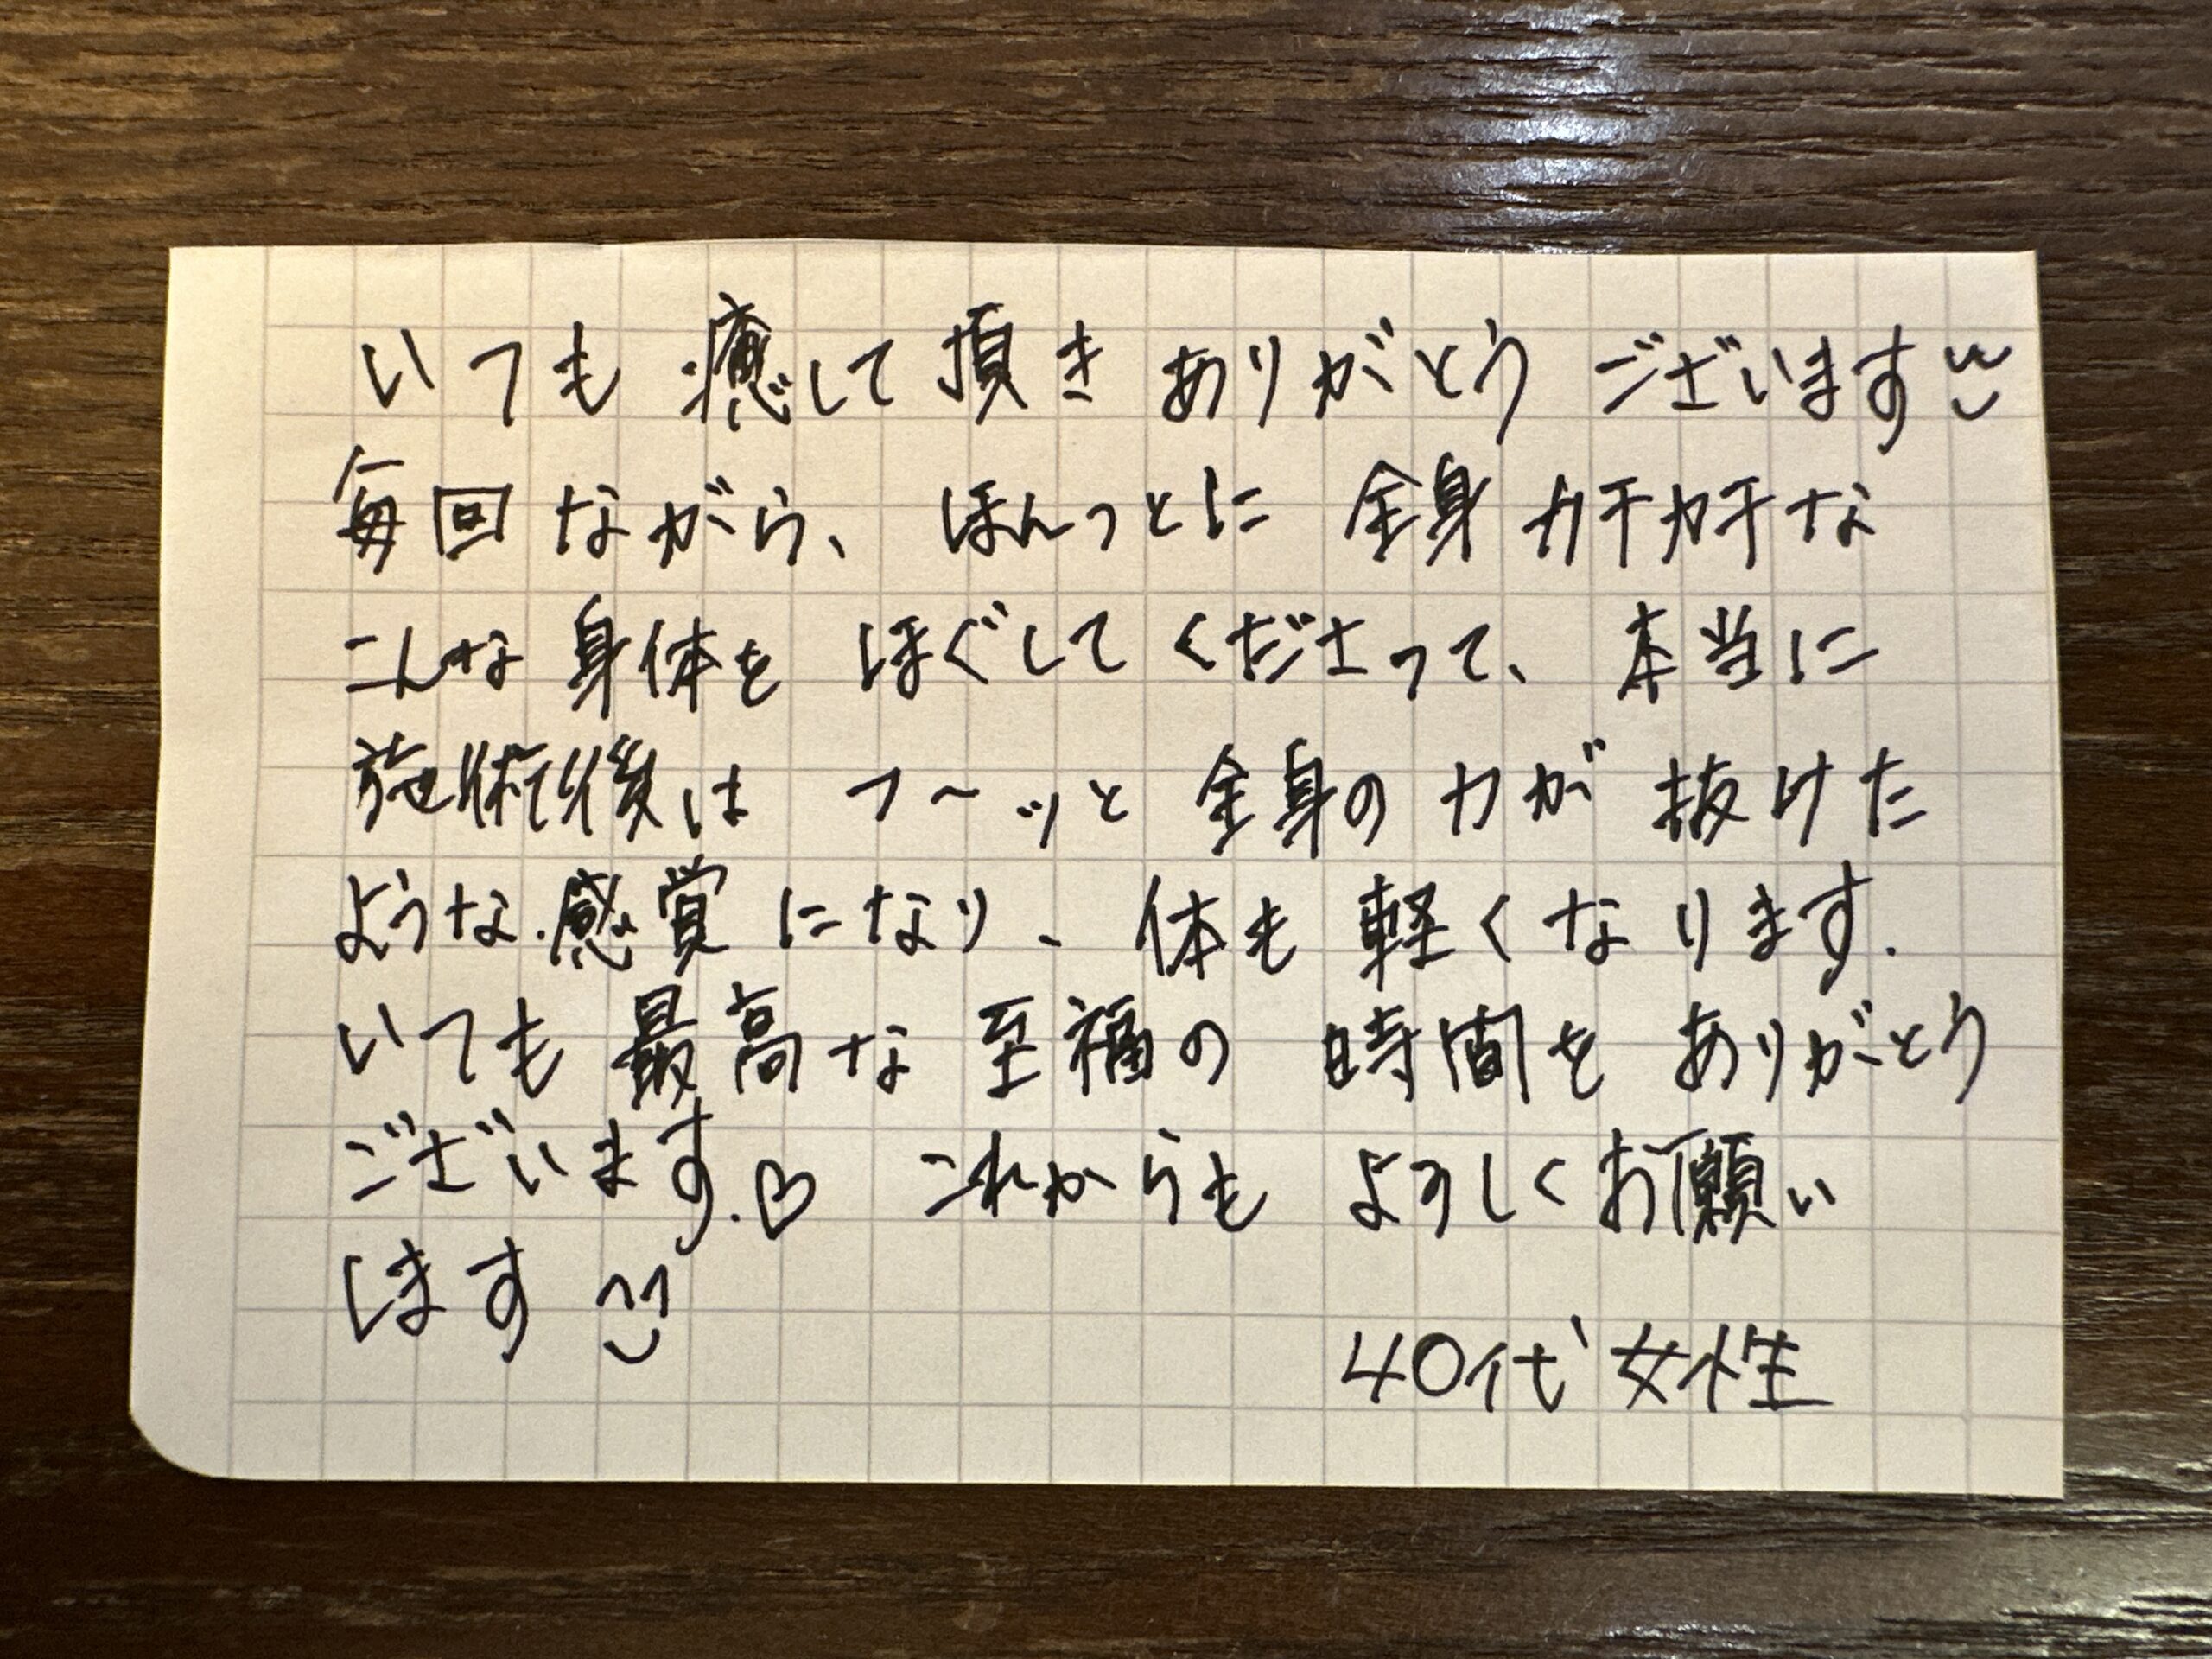 いつも癒して頂きありがとうございます
毎回ながら、ほんっとに全身カチカチな
こんな身体をほぐしてくださって、本当に
施術後はフ〜ッと全身の力が抜けた
ような感覚になり、体も軽くなります.
いつも最高な至福の時間をありがとう
ございます.♡ これからもよろしくお願い
します
40代 女性